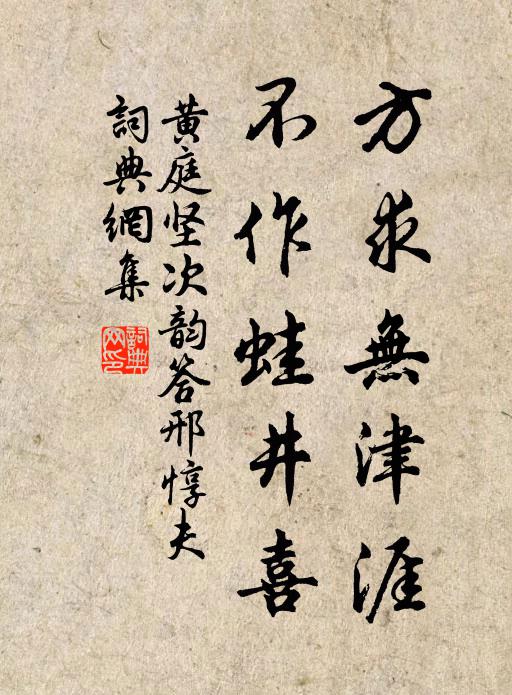 方求無津涯
不作蛙井喜
黄庭坚次韵答邢惇夫
詞典網集
詞典網印